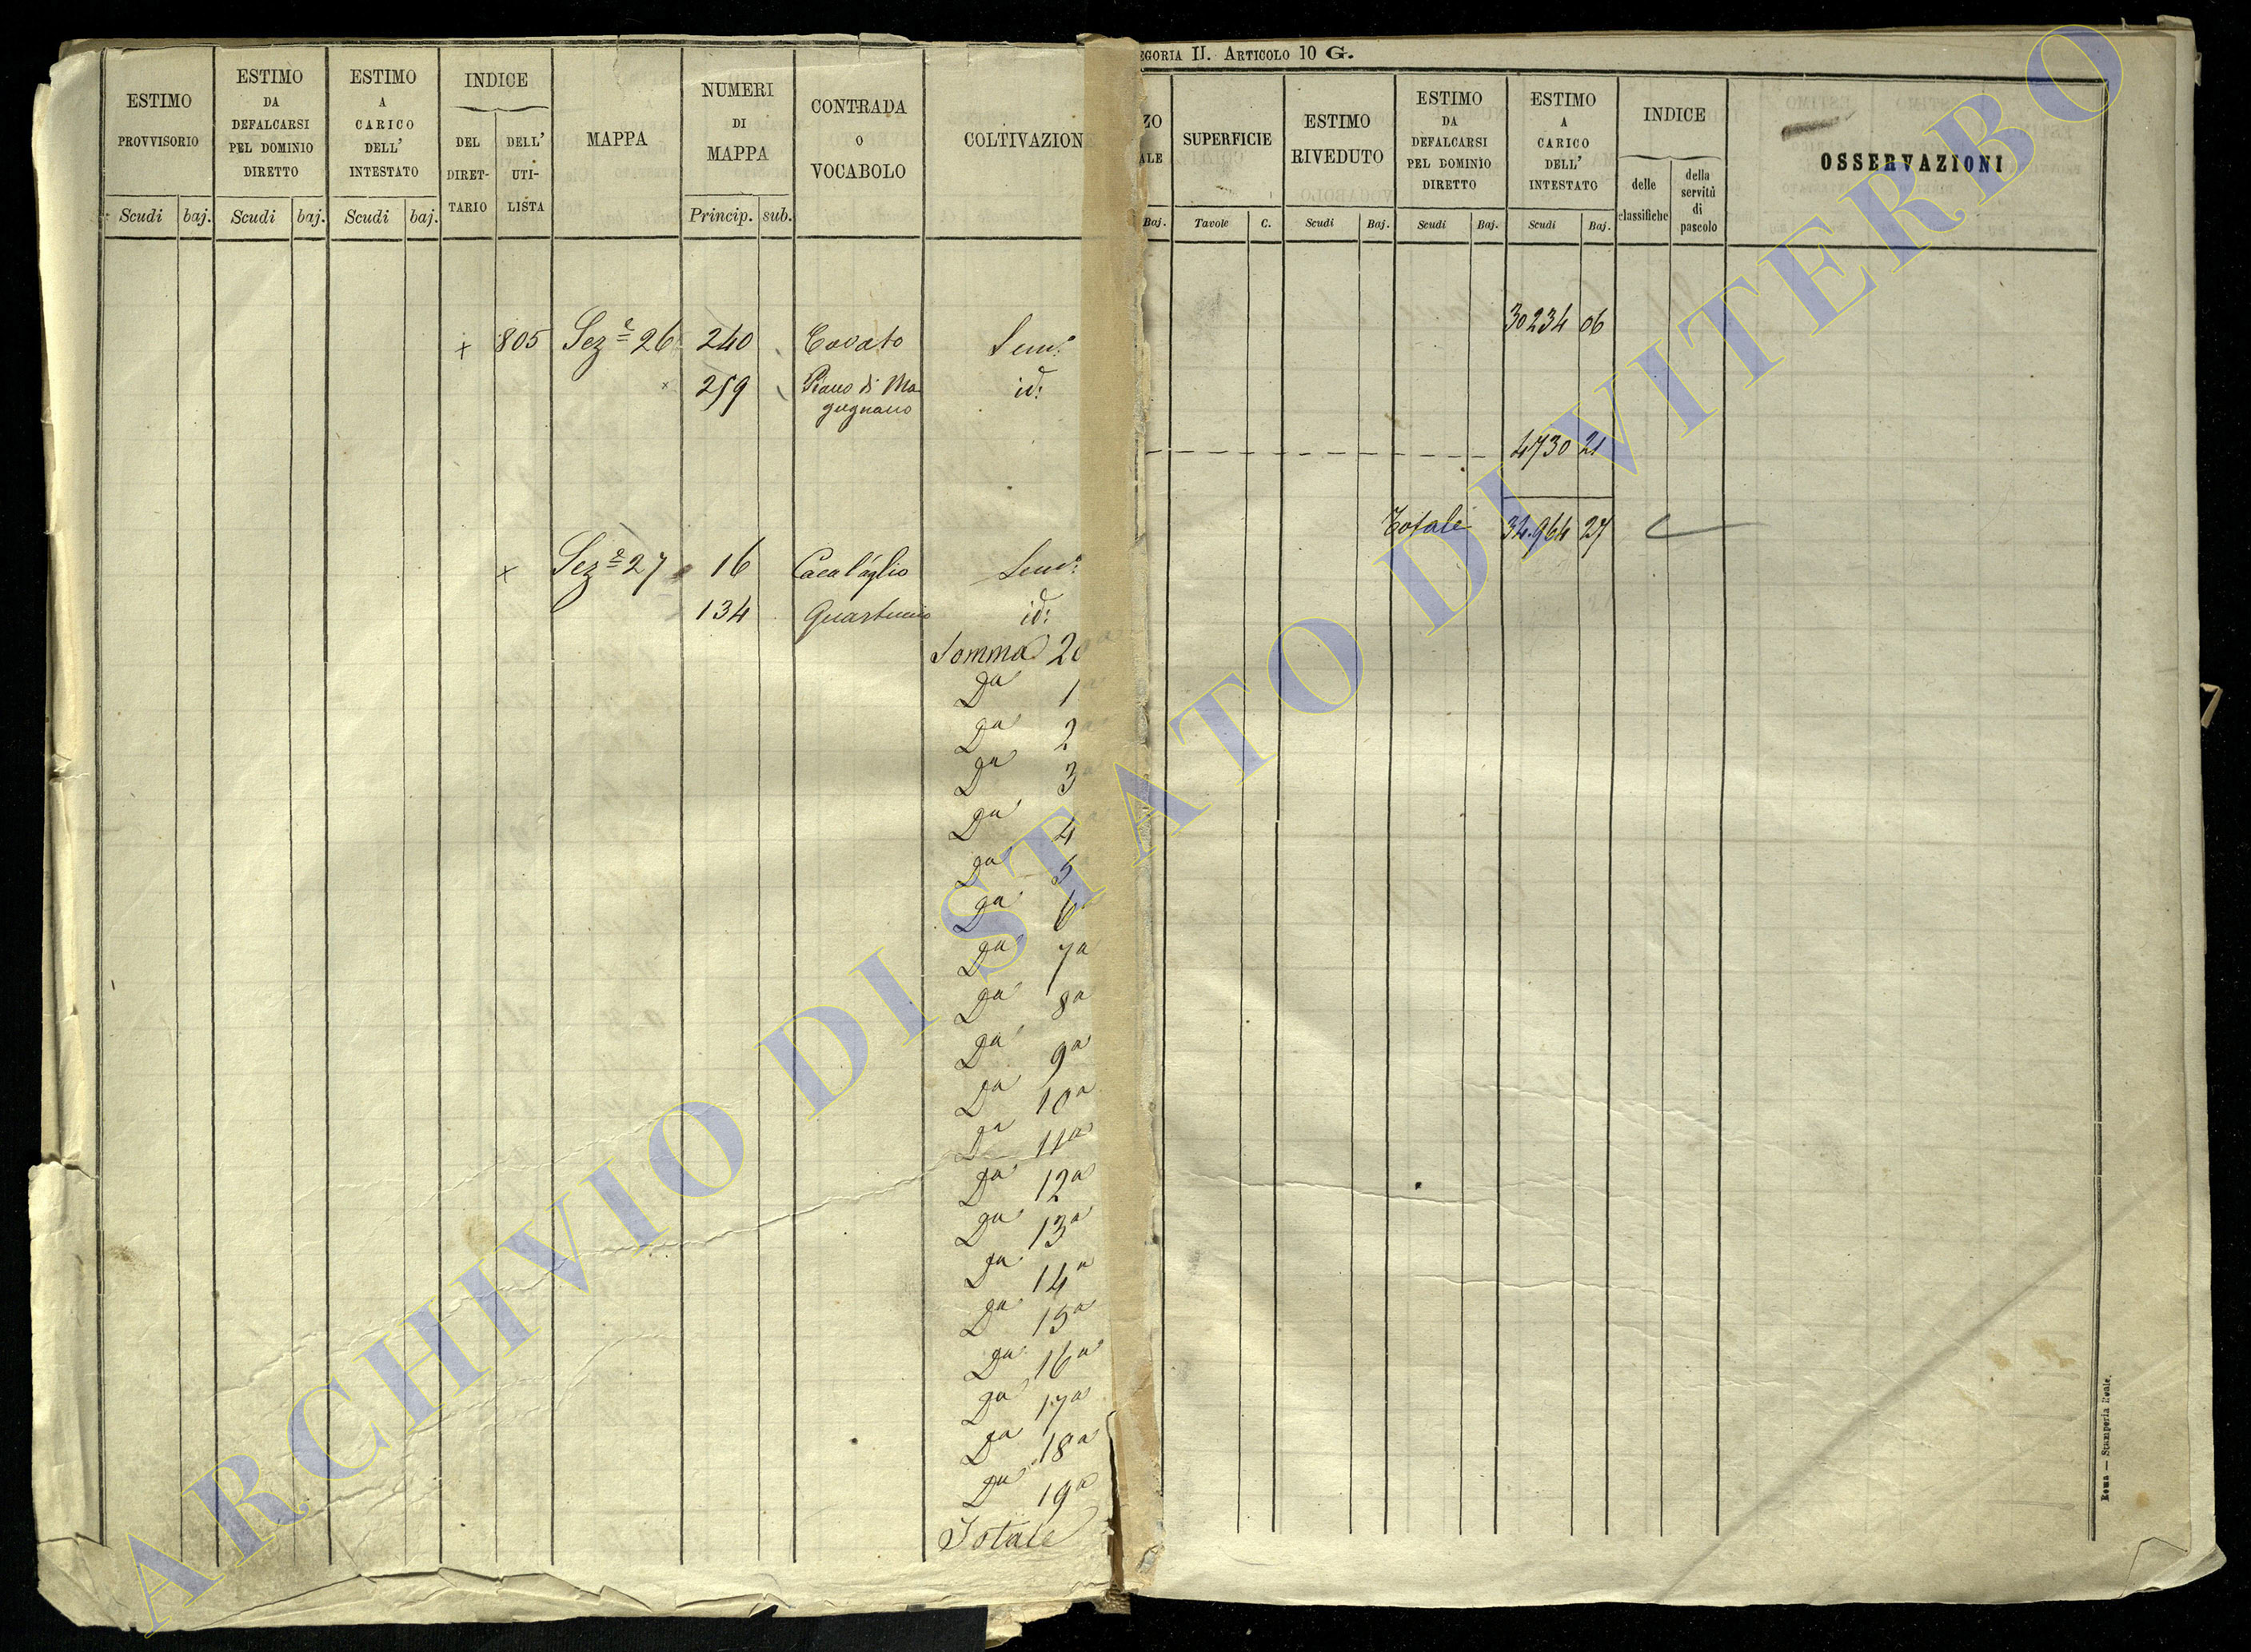 ESTIMO
PROVVISORIO
Scudi baj.
ESTIMO
DA
DEFALCARSI
PEL DOMINIO
DIRETTO
Scudi baj.
ESTIMO
A
CARICO
DELL'
INTESTATO
Scudi baj.
INDICE
DEL
DIRET-
TARIO
DELL'
UTI-
LISTA
MAPPA
NUMERI
DI
MAPPA
Princip. sub.
CONTRADA
O
VOCABOLO
COLTIVAZION
+ 805 Sez.e 26 240 Covato Sem.o
× 259 Piano di Ma
gugnano id:
× Sez.e 27 16 Sem.o
134 Quartuccio id:
Somma 20
Da 1
Da 2
Da 3
Da 4
Da 5
Da 6
Da 7a
Da 8a
Da 9a
Da 10a
Da 11a
Da 12a
Da 13a
Da 14a
Da 15a
Da 16a
Da 17a
Da 18a
Da 19a
Totale
EGORIA II. ARTICOLO 10 G.
ZO
ALE
Baj.
SUPERFICIE
Tavole C.
ESTIMO
RIVEDUTO
Scudi Baj.
ESTIMO
DA
DEFALCARSI
PEL DOMINIO
DIRETTO
Scudi Baj.
ESTIMO
A
CARICO
DELL'
INTESTATO
Scudi Baj.
INDICE
delle
classifiche
della
servitù
di
pascolo
OSSERVAZIONI
30234 06
4730 21
Totale 34.964 27
Roma — Stamperia Reale.
ARCHIVIO DI STATO DI VITERBO